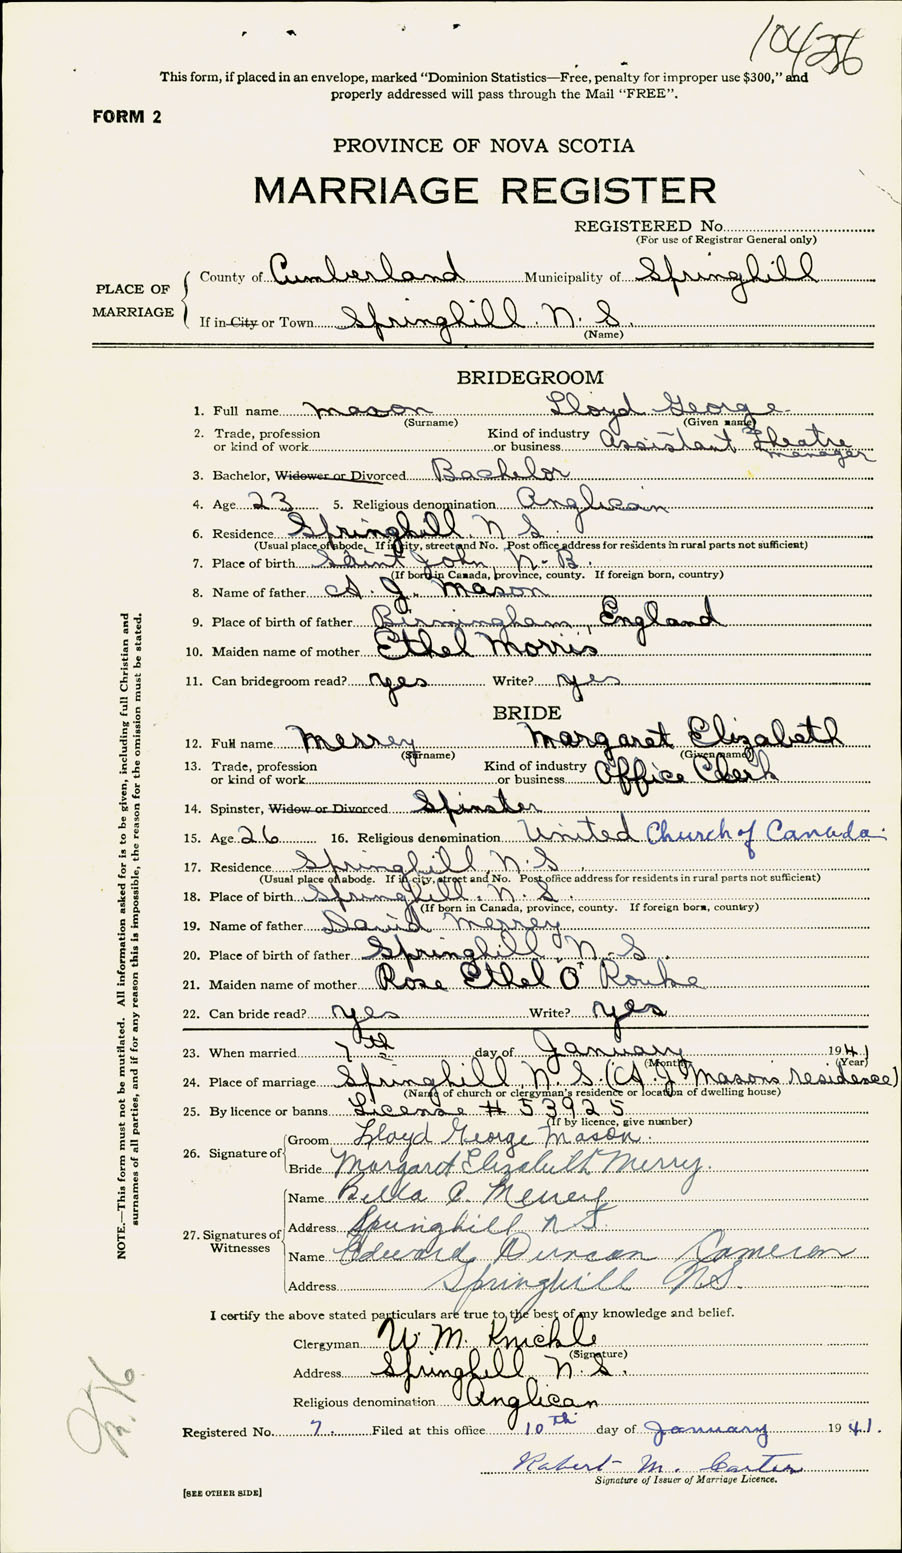 104256
This form, if placed in an envelope, marked “Dominion Statistics—Free, penalty for improper use $300,” and
properly addressed will pass through the Mail “FREE”.
FORM 2
PROVINCE OF NOVA SCOTIA
MARRIAGE REGISTER
REGISTERED No.
(For use of Registrar General only)
PLACE OF MARRIAGE
County of Cumberland Municipality of Springhill
If in City or Town Springhill. N. S.
(Name)
BRIDEGROOM
1. Full name Mason Lloyd George
(Surname) (Given name)
2. Trade, profession or kind of work Kind of industry or business Assistant Theatre manager
3. Bachelor, Widower or Divorced Bachelor
4. Age 23 5. Religious denomination Anglican
6. Residence Springhill, N S
(Usual place of abode. If in city, street and No. Post office address for residents in rural parts not sufficient)
7. Place of birth Saint John N. B.
(If born in Canada, province, county. If foreign born, country)
8. Name of father A. J. Mason
9. Place of birth of father Birmingham, England
10. Maiden name of mother Ethel Morris
11. Can bridegroom read? yes Write? yes
BRIDE
12. Full name Merrey Margaret Elizabeth
(Surname) (Given name)
13. Trade, profession or kind of work Kind of industry or business Office Clerk
14. Spinster, Widow or Divorced Spinster
15. Age 26 16. Religious denomination United Church of Canada.
17. Residence Springhill, N. S.
(Usual place of abode. If in city, street and No. Post office address for residents in rural parts not sufficient)
18. Place of birth Springhill. N. S.
(If born in Canada, province, county. If foreign born, country)
19. Name of father David Merrey
20. Place of birth of father Springhill, N. S.
21. Maiden name of mother Rose Ethel O' Rourke
22. Can bride read? yes Write? yes
23. When married 7th day of January 1941
(Month) (Year)
24. Place of marriage Springhill, N. S. (A. J. Masons residence)
(Name of church or clergyman's residence or location of dwelling house)
25. By licence or banns License # 53925
(If by licence, give number)
26. Signature of
Groom Lloyd George Mason.
Bride Margaret Elizabeth Merry.
27. Signatures of Witnesses
Name C. Merrey
Address Springhill N S.
Name Edward Duncan Cameron
Address Springhill NS.
I certify the above stated particulars are true to the best of my knowledge and belief.
Clergyman W. M. Knickle
(Signature)
Address Springhill N. S.
Religious denomination Anglican
Registered No. 7. Filed at this office 10th day of January 1941.
Robert M. Carter
Signature of Issuer of Marriage Licence.
[SEE OTHER SIDE]
NOTE.—This form must not be mutilated. All information asked for is to be given, including full Christian and
surnames of all parties, and if for any reason this is impossible, the reason for the omission must be stated.